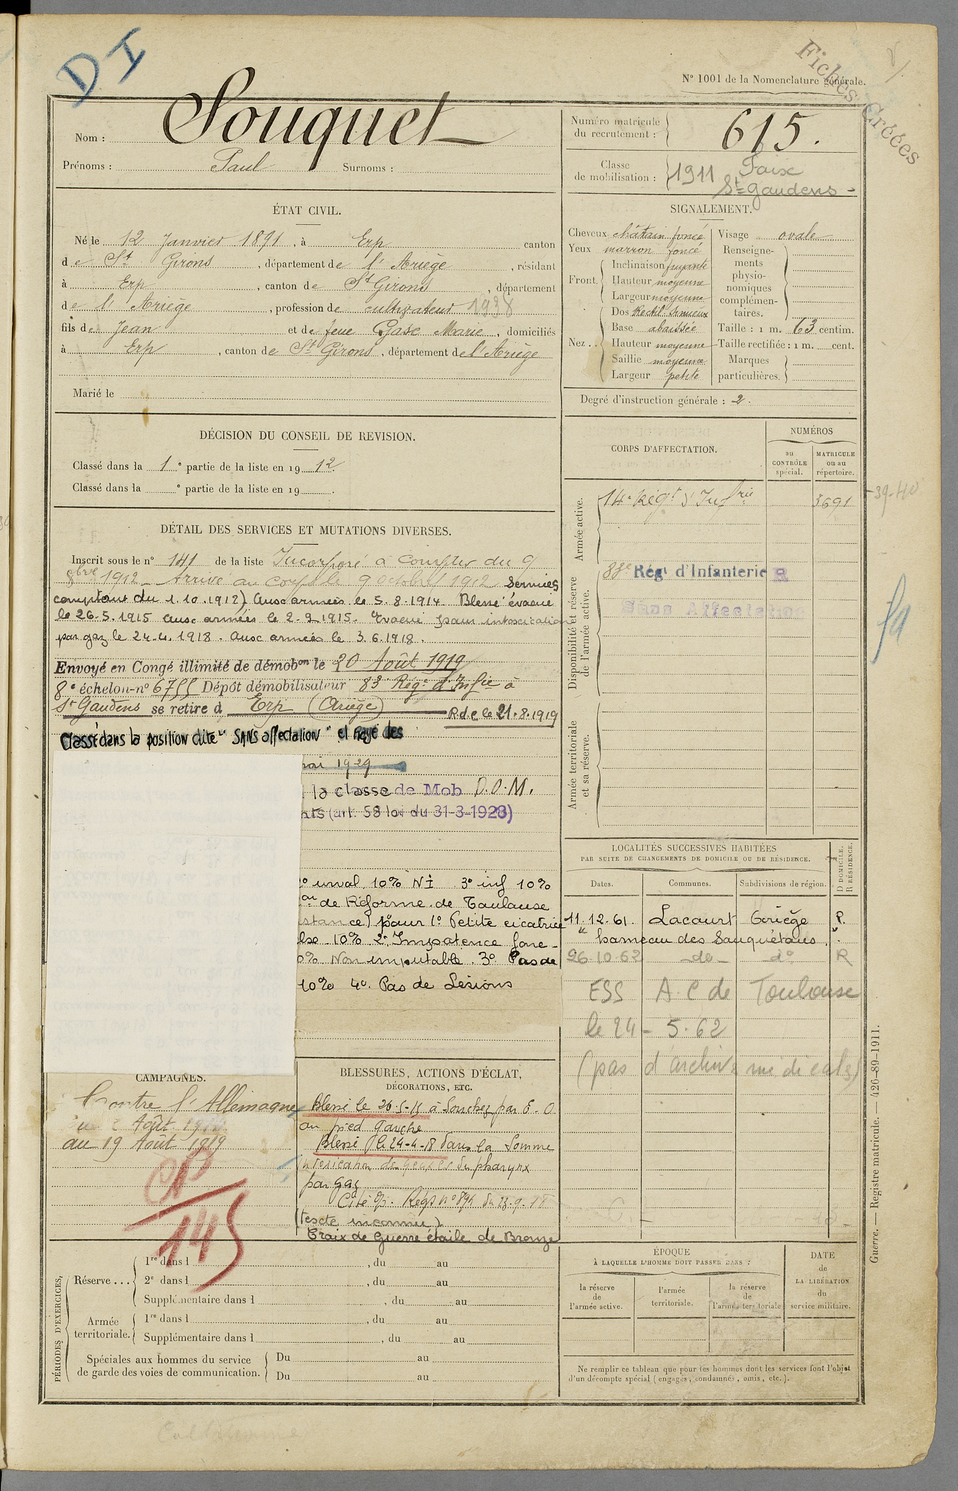 D I
Fiches Créées
N° 1001 de la Nomenclature générale.
Nom : Souquet
Prénoms : Paul Surnoms :
Numéro matricule du recrutement : 615.
Classe de mobilisation : 1911 Foix
St Gaudens -
ÉTAT CIVIL.
Né le 12 Janvier 1891, à Erp canton
de St Girons, département de l'Ariège, résidant
à Erp, canton de St Girons, département
de l'Ariège, profession de cultivateur 1938
fils de Jean et de feue Gasc Marie, domiciliés
à Erp, canton de St Girons, département de l'Ariège
Marié le
SIGNALEMENT.
Cheveux châtain foncé
Yeux marron foncé
Front. Inclinaison fuyante
Hauteur moyenne
Largeur moyenne
Nez.. Dos Rectil. sinueux
Base abaissée
Hauteur moyenne
Saillie moyenne
Largeur petite
Visage ovale
Renseignements physionomiques complémentaires.
Taille : 1 m. 63 centim.
Taille rectifiée : 1 m. cent.
Marques particulières.
Degré d'instruction générale : 2.
DÉCISION DU CONSEIL DE REVISION.
Classé dans la 1e partie de la liste en 1912
Classé dans la e partie de la liste en 19 .
CORPS D'AFFECTATION.
NUMÉROS
au CONTRÔLE spécial.
MATRICULE ou au répertoire.
Armée active.
14e Régt d'Infrie 5691
39-40
Disponibilité et réserve de l'armée active.
88e Régt d'Infanterie
Sans Affectation
Armée territoriale et sa réserve.
DÉTAIL DES SERVICES ET MUTATIONS DIVERSES.
Inscrit sous le n° 141 de la liste Incorporé à compter du 9
8bre 1912 - Arrivé au corps le 9 octobre 1912 Services
comptant du 1.10.1912) Aux armées le 5.8.1914 Blessé évacué
le 26.5.1915 aux armées le 2.9.1915. Evacué pour intoxication
par gaz le 24.4.1918. Aux armées le 3.6.1918.
Envoyé en Congé illimité de démobon le 20 Août 1919
8e échelon n° 6755 Dépôt démobilisateur 83e Régt d'Infie à
St Gaudens se retire à Erp (Ariège) R.d.c le 21.8.1919
Classé dans la position dite "SANS affectation" et rayé des
1929
la classe de Mob D.O.M.
nts (art. 58 loi du 31-3-1928)
inval 10% NI 3° inf 10%
on de Réforme de Toulouse
stance) pour 1° Petite cicatrice
10% 2° Impotence fonc-
0% Non imputable. 3° Pas de
10% 4° Pas de Lésions
LOCALITÉS SUCCESSIVES HABITÉES
PAR SUITE DE CHANGEMENTS DE DOMICILE OU DE RÉSIDENCE.
Dates. Communes. Subdivisions de région. D DOMICILE. R RÉSIDENCE.
11.12.61. Lacourt Ariège R.
" hameau des Sauquétous. "
26.10.62 -do- d° R
ESS A C de Toulouse
le 24-5.62
(pas d'archives médicales)
CAMPAGNES.
Contre l'Allemagne
du 2 Août 1914
au 19 Août 1919
CP
145
BLESSURES, ACTIONS D'ÉCLAT,
DÉCORATIONS, ETC.
Blessé le 26-5-15 à Souchez par E.O
au pied gauche
Blessé le 24-4-18 dans la Somme
par gaz
(texte inconnu)
Croix de Guerre étoile de Bronze
PÉRIODES D'EXERCICES,
Réserve ... 1re dans l , du au
2e dans l , du au
Supplémentaire dans l , du au
Armée territoriale. 1re dans l , du au
Supplémentaire dans l , du au
Spéciales aux hommes du service de garde des voies de communication. Du au
Du au
ÉPOQUE
À LAQUELLE L'HOMME DOIT PASSER DANS :
la réserve de l'armée active.
l'armée territoriale.
la réserve de l'armée territoriale
DATE DE LA LIBÉRATION du service militaire.
Ne remplir ce tableau que pour les hommes dont les services font l'objet
d'un décompte spécial (engagés, condamnés, omis, etc.).
Guerre. — Registre matricule. — 426-89-1911.